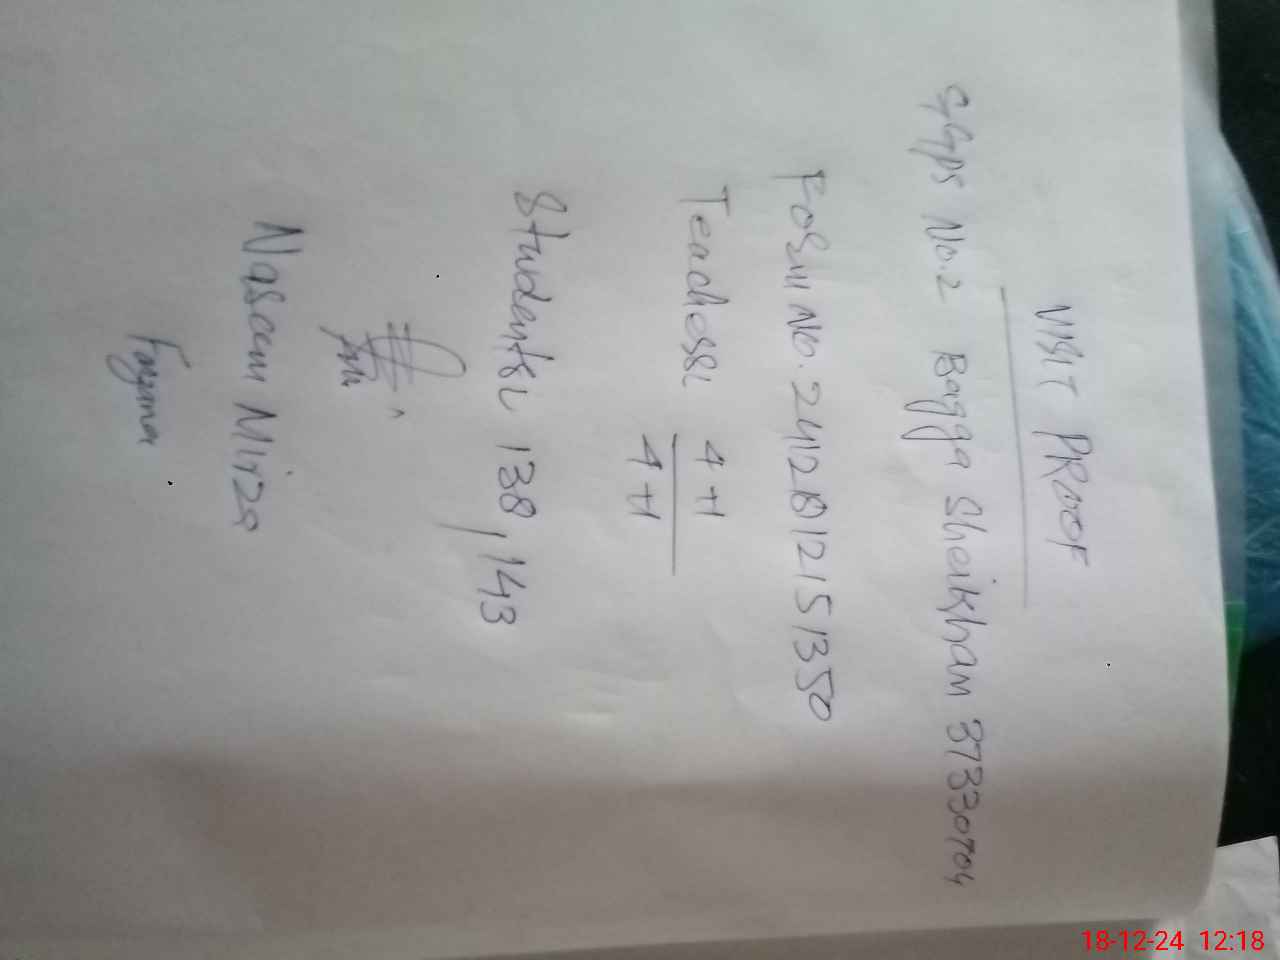 VISIT PROOF
GGPS No.2 Bagga Sheikham 37330704
Form No. 24121812151350
Teachers: 4+1
4+1
Students: 138, 143
Naseem Mirza
18-12-24 12:18